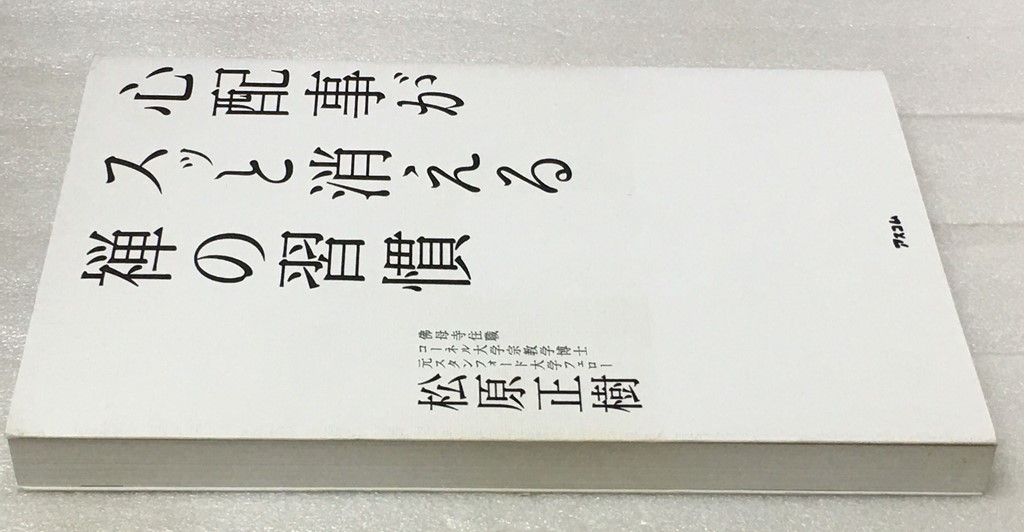 心配事が
スッと消える
禅の習慣
佛母寺住職
コーネル大学宗教学博士
元スタンフォード大学フェロー
松原正樹
アスコム